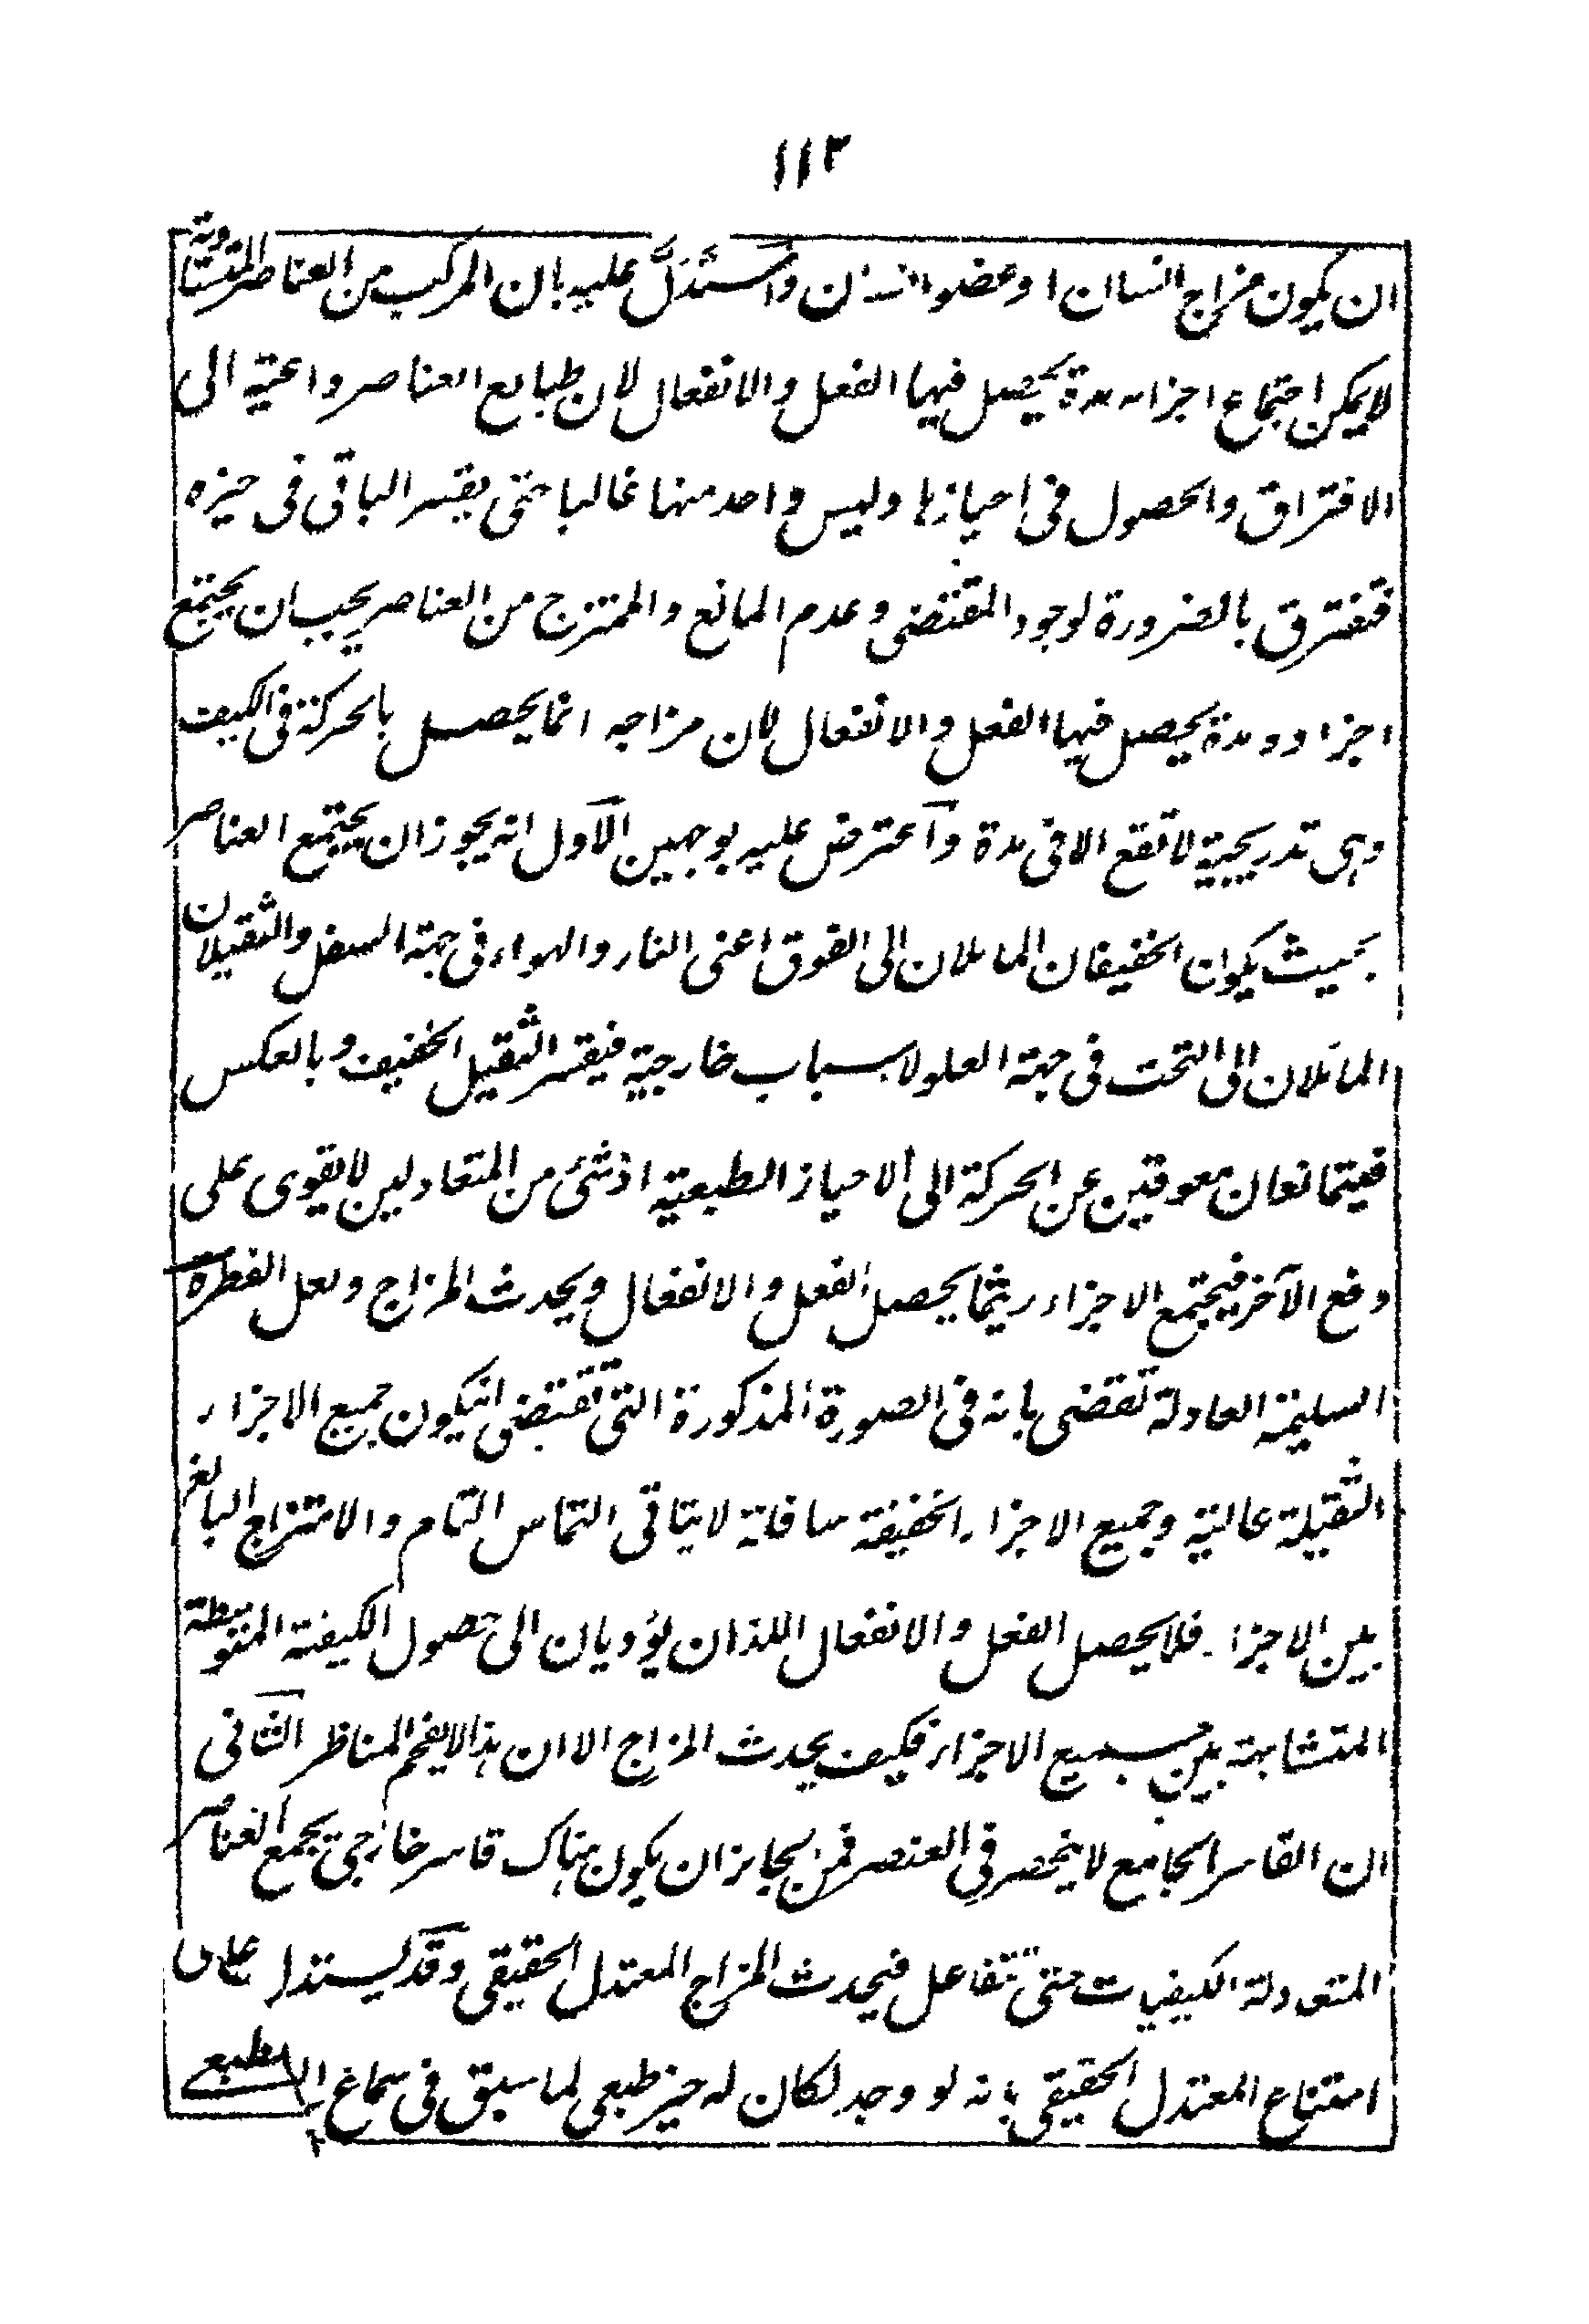 ١١٣
ان يكون مزاج انسان او عضو انسان واستدل عليه بان المركب من العناصر المتساوية
لا يمكن اجتماع اجزائه مدة يحصل فيها الفعل والانفعال لان طبايع العناصر داعية الى
الافتراق والحصول فى احيازها وليس واحد منها غالبا حتى يقسر الباقى فى حيزه
فتفترق بالضرورة لوجود المقتضى وعدم المانع والممتزج من العناصر يجب ان يجتمع
اجزاؤه مدة يحصل فيها الفعل والانفعال لان مزاجه انما يحصل بالحركة فى الكيف
وهى تدريجية لا تقع الا فى مدة وآعترض عليه بوجهين الآول انه يجوز ان يجتمع العناصر
بحيث يكون الخفيفان المائلان الى الفوق اعنى النار والهواء فى جهة السفل والثقيلان
المائلان الى التحت فى جهة العلو لاسباب خارجية فيقسر الثقيل الخفيف وبالعكس
فيتمانعان معوقين عن الحركة الى الاحياز الطبعية اذ شئ من المتعادلين لا يقوى على
دفع الآخر فيجتمع الاجزاء ريثما يحصل الفعل والانفعال ويحدث المزاج ولعل الفطرة
السليمة العادلة تقضى بانه فى الصورة المذكورة التى تقتضى انيكون جميع الاجزاء
الثقيلة عالية وجميع الاجزاء الخفيفة سافلة لا يتاتى التماس التام والامتزاج البالغ
بين الاجزاء فلا يحصل الفعل والانفعال اللذان يؤديان الى حصول الكيفية المتوسطة
المتشابهة بين جميع الاجزاء فكيف يحدث المزاج الا ان هذا لا يفحم المناظر الثانى
ان القاسر الجامع لا ينحصر فى العنصر فمن الجائز ان يكون هناك قاسر خارجى يجمع العناصر
المتعادلة الكيفيات حتى تتفاعل فيحدث المزاج المعتدل الحقيقى وقد يستدل على
امتناع المعتدل الحقيقى بانه لو وجد لكان له حيز طبعى لما سبق فى سماع الطبعى